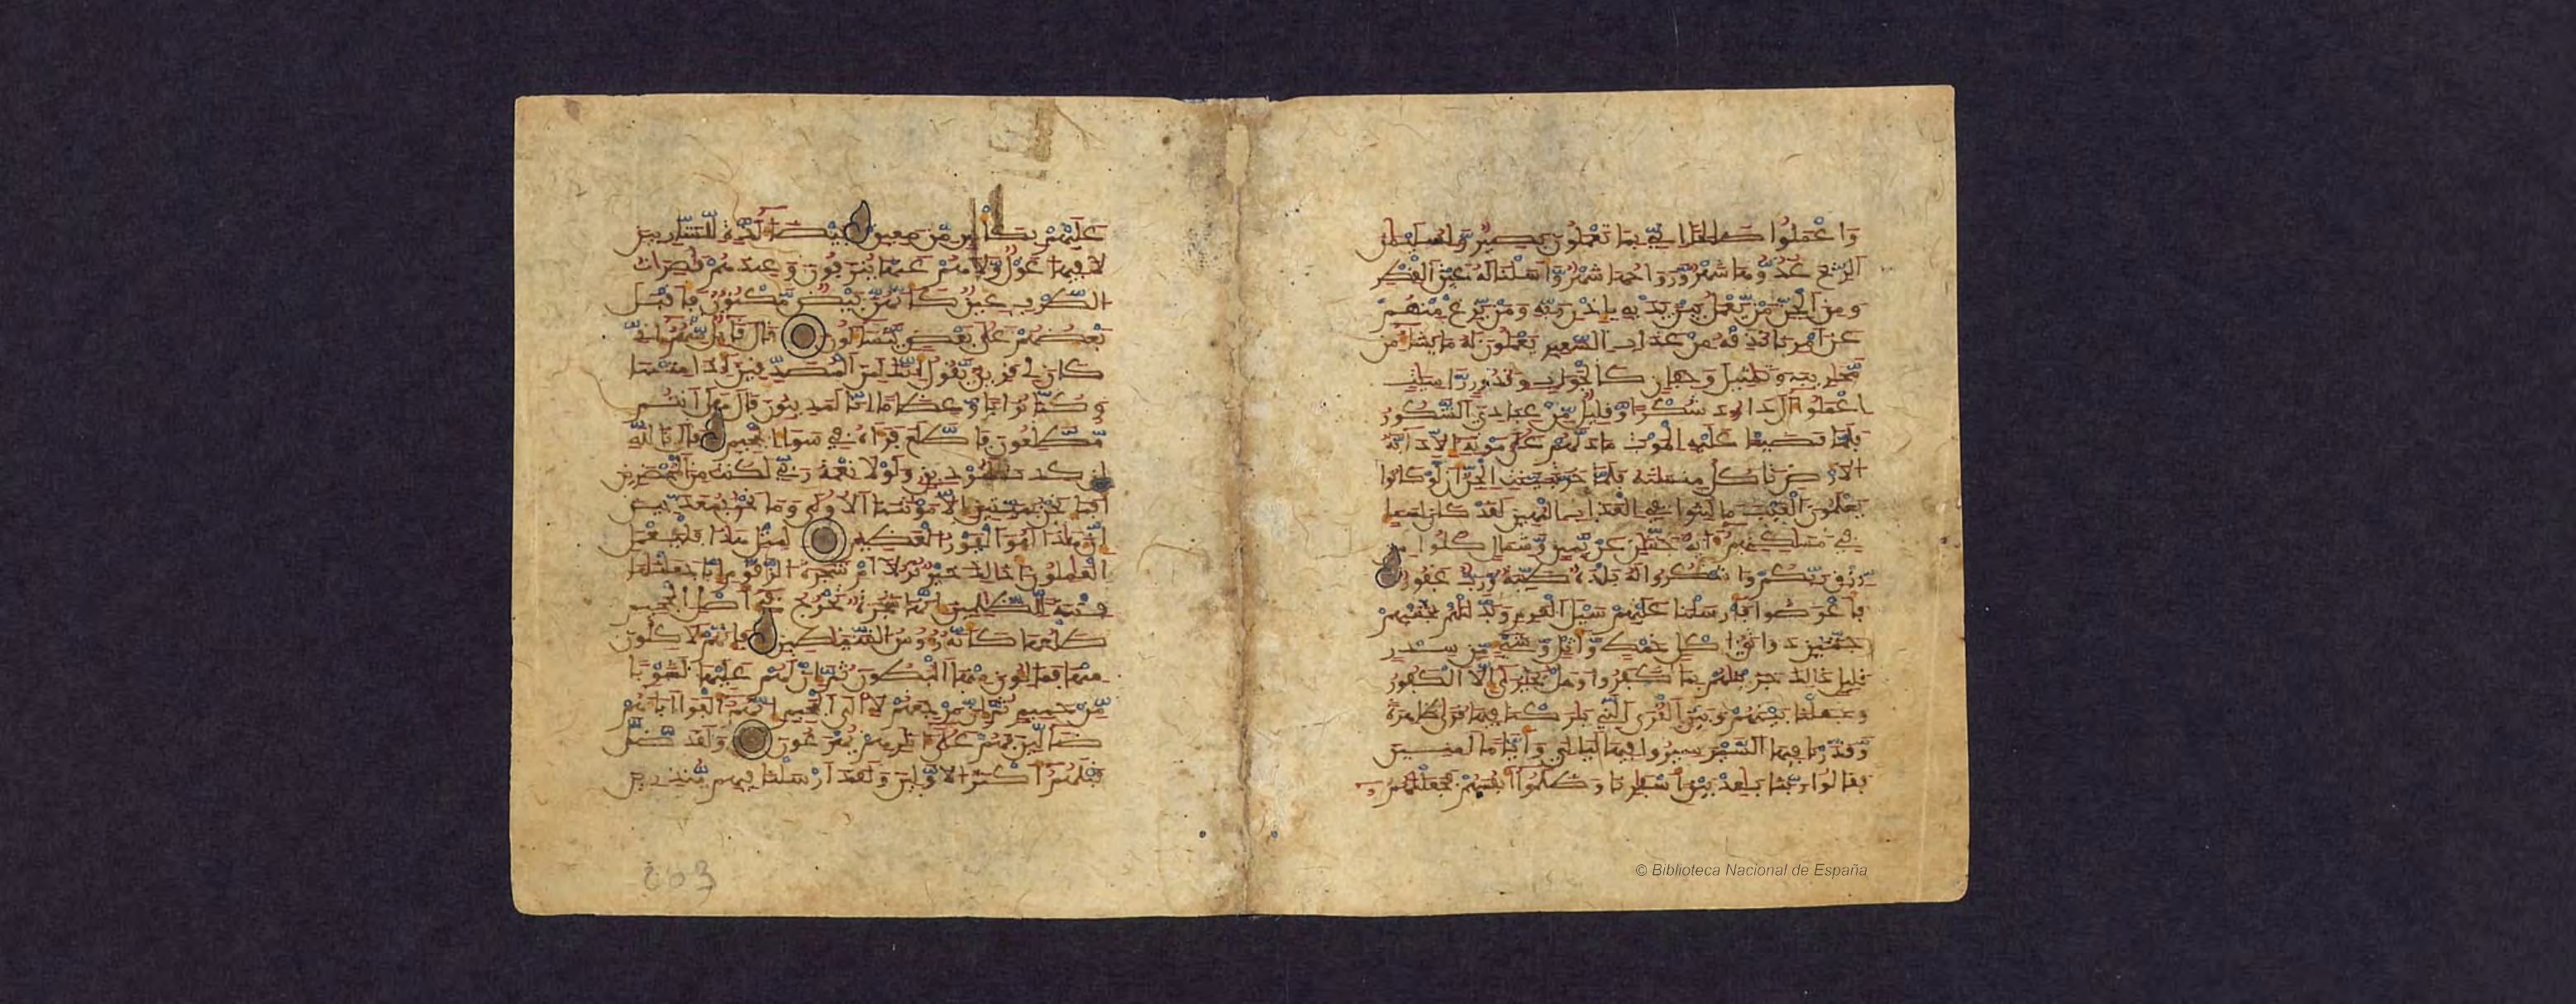 وَاعْمَلُوا صَالِحًا اِنِّي بِمَا تَعْمَلُونَ بَصِيرٌ وَلِسُلَيْمَٰنَ
اَلرِّيحَ غُدُوُّهَا شَهْرٌ وَرَوَاحُهَا شَهْرٌ وَأَسَلْنَا لَهُ عَيْنَ اَلْقِطْرِ
وَمِنَ اَلْجِنِّ مَنْ يَّعْمَلُ بَيْنَ يَدَيْهِ بِإِذْنِ رَبِّهِ وَمَنْ يَّزِغْ مِنْهُمْ
عَنَ اَمْرِنَا نُذِقْهُ مِنْ عَذَابِ اِلسَّعِيرِ يَعْمَلُونَ لَهُ مَا يَشَاءُ مِن
مَّحَٰرِيبَ وَتَمَٰثِيلَ وَجِفَانٍ كَالْجَوَابِ وَقُدُورٍ رَّاسِيَٰتٍ
اِعْمَلُوا ءَالَ دَاوُدَ شُكْرًا وَقَلِيلٌ مِّنْ عِبَادِيَ اَلشَّكُورُ
فَلَمَّا قَضَيْنَا عَلَيْهِ اِلْمَوْتَ مَا دَلَّهُمْ عَلَىٰ مَوْتِهِ إِلَّا دَابَّةُ
اُلْأَرْضِ تَاكُلُ مِنسَاتَهُ فَلَمَّا خَرَّ تَبَيَّنَتِ اِلْجِنُّ أَن لَّوْ كَانُوا
يَعْلَمُونَ اَلْغَيْبَ مَا لَبِثُوا فِي اِلْعَذَابِ اِلْمُهِينِ لَقَدْ كَانَ لِسَبَإٍ
فِي مَسَٰكِنِهِمُ ءَايَةٌ جَنَّتَٰنِ عَنْ يَّمِينٍ وَشِمَالٍ كُلُوا مِن
رِّزْقِ رَبِّكُمْ وَاشْكُرُوا لَهُ بَلْدَةٌ طَيِّبَةٌ وَرَبٌّ غَفُورٌ
فَأَعْرَضُوا فَأَرْسَلْنَا عَلَيْهِمْ سَيْلَ اَلْعَرِمِ وَبَدَّلْنَٰهُم بِجَنَّتَيْهِمْ
جَنَّتَيْنِ ذَوَاتَيُ اكْلٍ خَمْطٍ وَأَثْلٍ وَشَيْءٍ مِّن سِدْرٍ
قَلِيلٍ ذَٰلِكَ جَزَيْنَٰهُم بِمَا كَفَرُوا وَهَلْ يُجَٰزَىٰ إِلَّا اَلْكَفُورُ
وَجَعَلْنَا بَيْنَهُمْ وَبَيْنَ اَلْقُرَى اَلَّتِي بَٰرَكْنَا فِيهَا قُرًى ظَٰهِرَةً
وَقَدَّرْنَا فِيهَا اَلسَّيْرَ سِيرُوا فِيهَا لَيَالِيَ وَأَيَّامًا اٰمِنِينَ
فَقَالُوا رَبَّنَا بَٰعِدْ بَيْنَ أَسْفَارِنَا وَظَلَمُوا أَنفُسَهُمْ فَجَعَلْنَٰهُمُ
عَلَيْهِم بِكَأْسٍ مِّن مَّعِينٍ بَيْضَاءَ لَذَّةٍ لِّلشَّٰرِبِينَ
لَا فِيهَا غَوْلٌ وَلَا هُمْ عَنْهَا يُنزَفُونَ وَعِندَهُمْ قَٰصِرَٰتُ
اُلطَّرْفِ عِينٌ كَأَنَّهُنَّ بَيْضٌ مَّكْنُونٌ فَأَقْبَلَ
بَعْضُهُمْ عَلَىٰ بَعْضٍ يَتَسَاءَلُونَ قَالَ قَائِلٌ مِّنْهُمُ إِنِّي
كَانَ لِي قَرِينٌ يَقُولُ أَئِنَّكَ لَمِنَ اَلْمُصَدِّقِينَ أَئِذَا مِتْنَا
وَكُنَّا تُرَابًا وَعِظَامًا اِنَّا لَمَدِينُونَ قَالَ هَلَ اَنتُم
مُّطَّلِعُونَ فَاطَّلَعَ فَرَءَاهُ فِي سَوَاءِ اِلْجَحِيمِ قَالَ تَاللَّهِ
إِن كِدتَّ لَتُرْدِينِ وَلَوْلَا نِعْمَةُ رَبِّي لَكُنتُ مِنَ اَلْمُحْضَرِينَ
أَفَمَا نَحْنُ بِمَيِّتِينَ إِلَّا مَوْتَتَنَا اَلُاولَىٰ وَمَا نَحْنُ بِمُعَذَّبِينَ
إِنَّ هَٰذَا لَهُوَ اَلْفَوْزُ اُلْعَظِيمُ لِمِثْلِ هَٰذَا فَلْيَعْمَلِ
اِلْعَٰمِلُونَ أَذَٰلِكَ خَيْرٌ نُّزُلًا اَمْ شَجَرَةُ اُلزَّقُّومِ إِنَّا جَعَلْنَٰهَا
فِتْنَةً لِّلظَّٰلِمِينَ إِنَّهَا شَجَرَةٌ تَخْرُجُ فِي أَصْلِ اِلْجَحِيمِ
طَلْعُهَا كَأَنَّهُ رُءُوسُ اُلشَّيَٰطِينِ فَإِنَّهُمْ لَأٓكِلُونَ
مِنْهَا فَمَالِئُونَ مِنْهَا اَلْبُطُونَ ثُمَّ إِنَّ لَهُمْ عَلَيْهَا لَشَوْبًا
مِّنْ حَمِيمٍ ثُمَّ إِنَّ مَرْجِعَهُمْ لَإِلَى اَلْجَحِيمِ إِنَّهُمُ أَلْفَوَا اٰبَاءَهُمْ
ضَالِّينَ فَهُمْ عَلَىٰ ءَاثَٰرِهِمْ يُهْرَعُونَ وَلَقَد ضَّلَّ
قَبْلَهُمُ أَكْثَرُ اُلْأَوَّلِينَ وَلَقَدَ اَرْسَلْنَا فِيهِم مُّنذِرِينَ
© Biblioteca Nacional de España